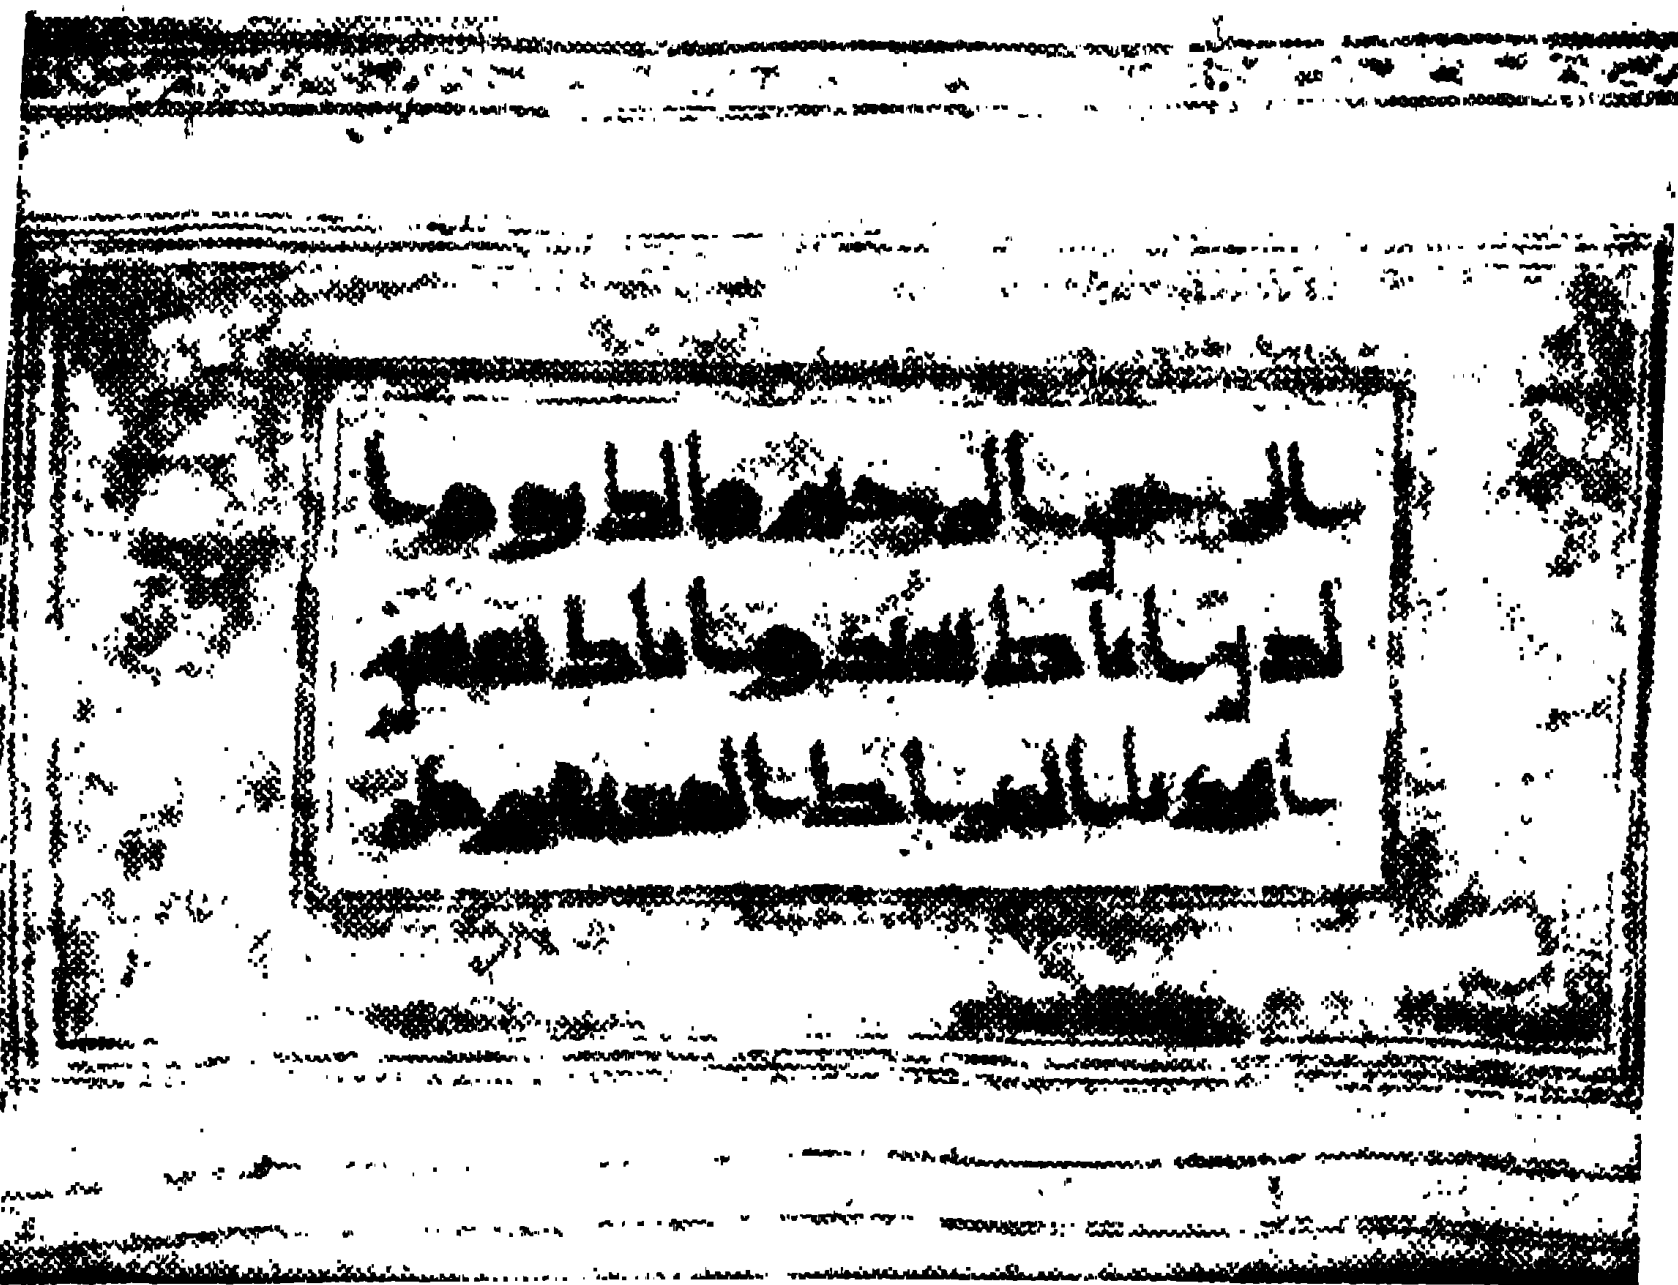 الرحمن الرحيم مالك يوم ا
لدين اياك نعبد و اياك نستعين
اهدنا الصراط المستقيم